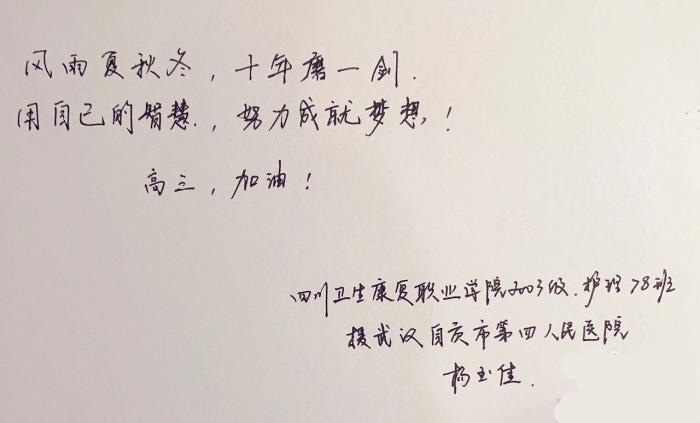 风雨夏秋冬，十年磨一剑.
用自己的智慧.，努力成就梦想，！
高三，加油！
四川卫生康复职业学院2003级.护理78班
援武汉自贡市第四人民医院
杨玉佳.